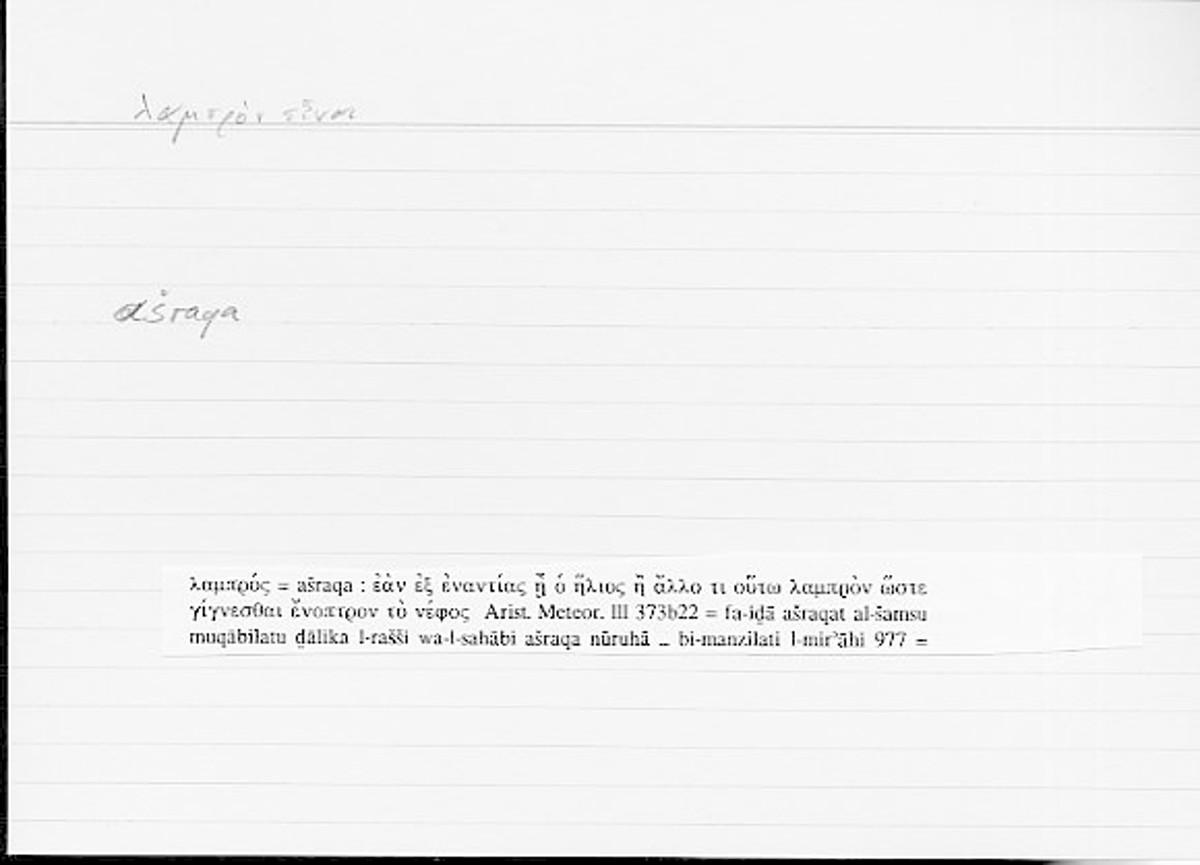 λαμπρὸν εἶναι
ašraqa
λαμπρός = ašraqa : ἐὰν ἐξ ἐναντίας ᾖ ὁ ἥλιος ἢ ἄλλο τι οὕτω λαμπρὸν ὥστε
γίγνεσθαι ἔνοπτρον τὸ νέφος Arist. Meteor. III 373b22 = fa-iḏā ašraqat al-šamsu
muqābilatu ḏālika l-rašši wa-l-sahābi ašraqa nūruhā ... bi-manzilati l-mirʾāhi 977 =